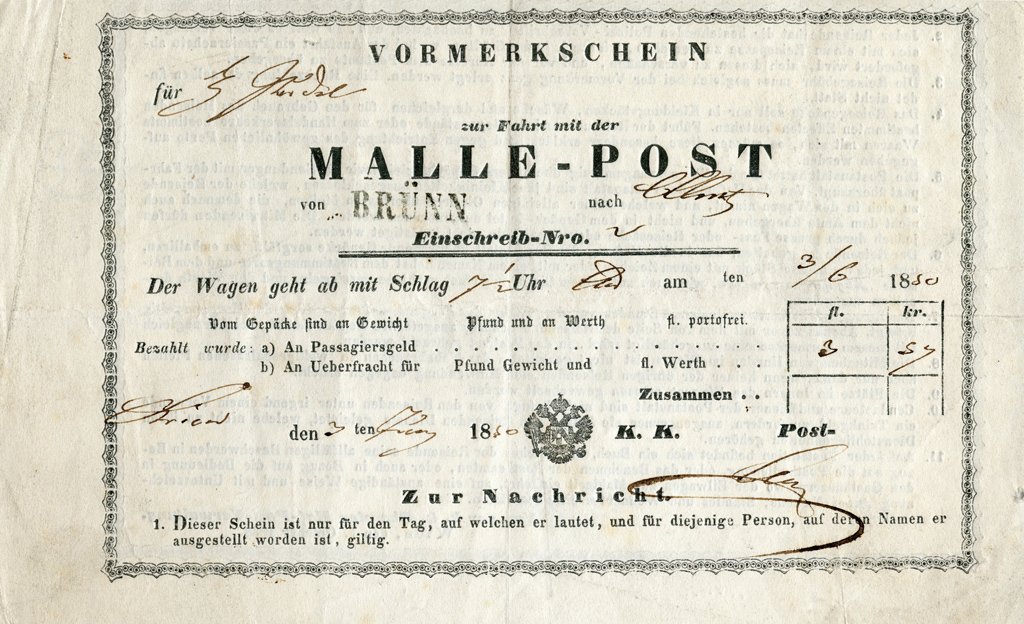 VORMERKSCHEIN
für
zur Fahrt mit der
MALLE-POST
von BRÜNN nach
Einschreib-Nro. 2
Der Wagen geht ab mit Schlag 7½ Uhr am ten 3/6 1850
Vom Gepäcke sind an Gewicht Pfund und an Werth fl. portofrei. fl. kr.
Bezahlt wurde: a) An Passagiersgeld . . . . . . . . . . . . . . . . . 3 57
b) An Ueberfracht für Pfund Gewicht und fl. Werth . . .
Zusammen . .
den 3 ten Juni 1850 K. K. Post-
Zur Nachricht.
1. Dieser Schein ist nur für den Tag, auf welchen er lautet, und für diejenige Person, auf deren Namen er
ausgestellt worden ist, giltig.